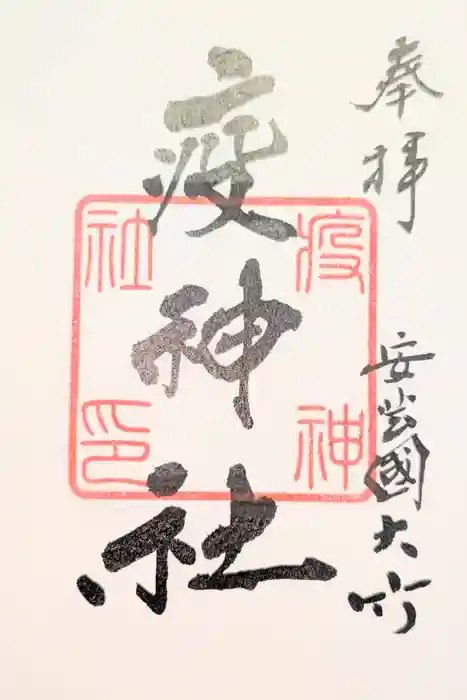 奉拝
安芸國大竹
疫神社
疫神
社印